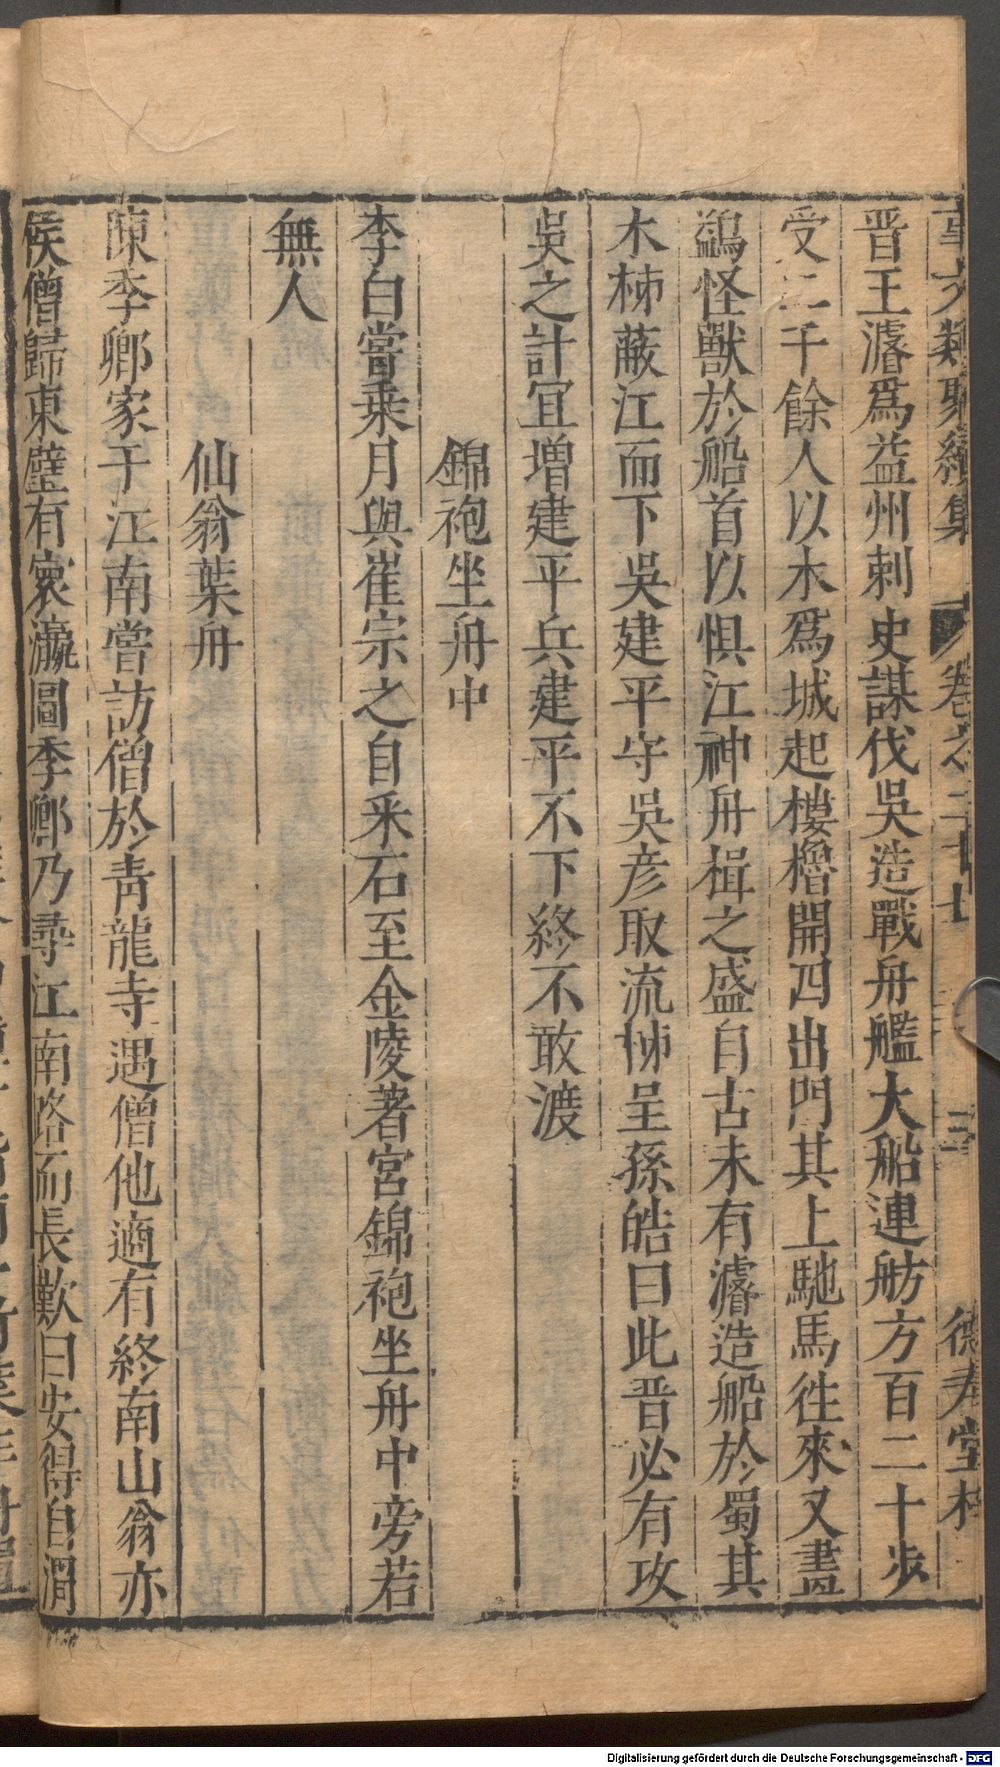 事文類聚續集 卷之二十七 三 德壽堂梓
晋王濬爲益州刺史謀伐吳造戰舟艦大船連舫方百二十步
受二千餘人以木爲城起樓櫓開四出門其上馳馬徃來又畫
鷁怪獸於船首以惧江神舟楫之盛自古未有濬造船於蜀其
木柹蔽江而下吳建平守吳彦取流柹呈孫皓曰此晋必有攻
吳之計宜增建平兵建平不下終不敢渡
錦袍坐舟中
李白嘗乗月與崔宗之自釆石至金陵著宮錦袍坐舟中旁若
無人
仙翁葉舟
陳季卿家于江南嘗訪僧於青龍寺遇僧他適有終南山翁亦
候僧歸東壁有寰瀛圖季卿乃尋江南路而長歎曰安得自渭
Digitalisierung gefördert durch die Deutsche Forschungsgemeinschaft - DFG